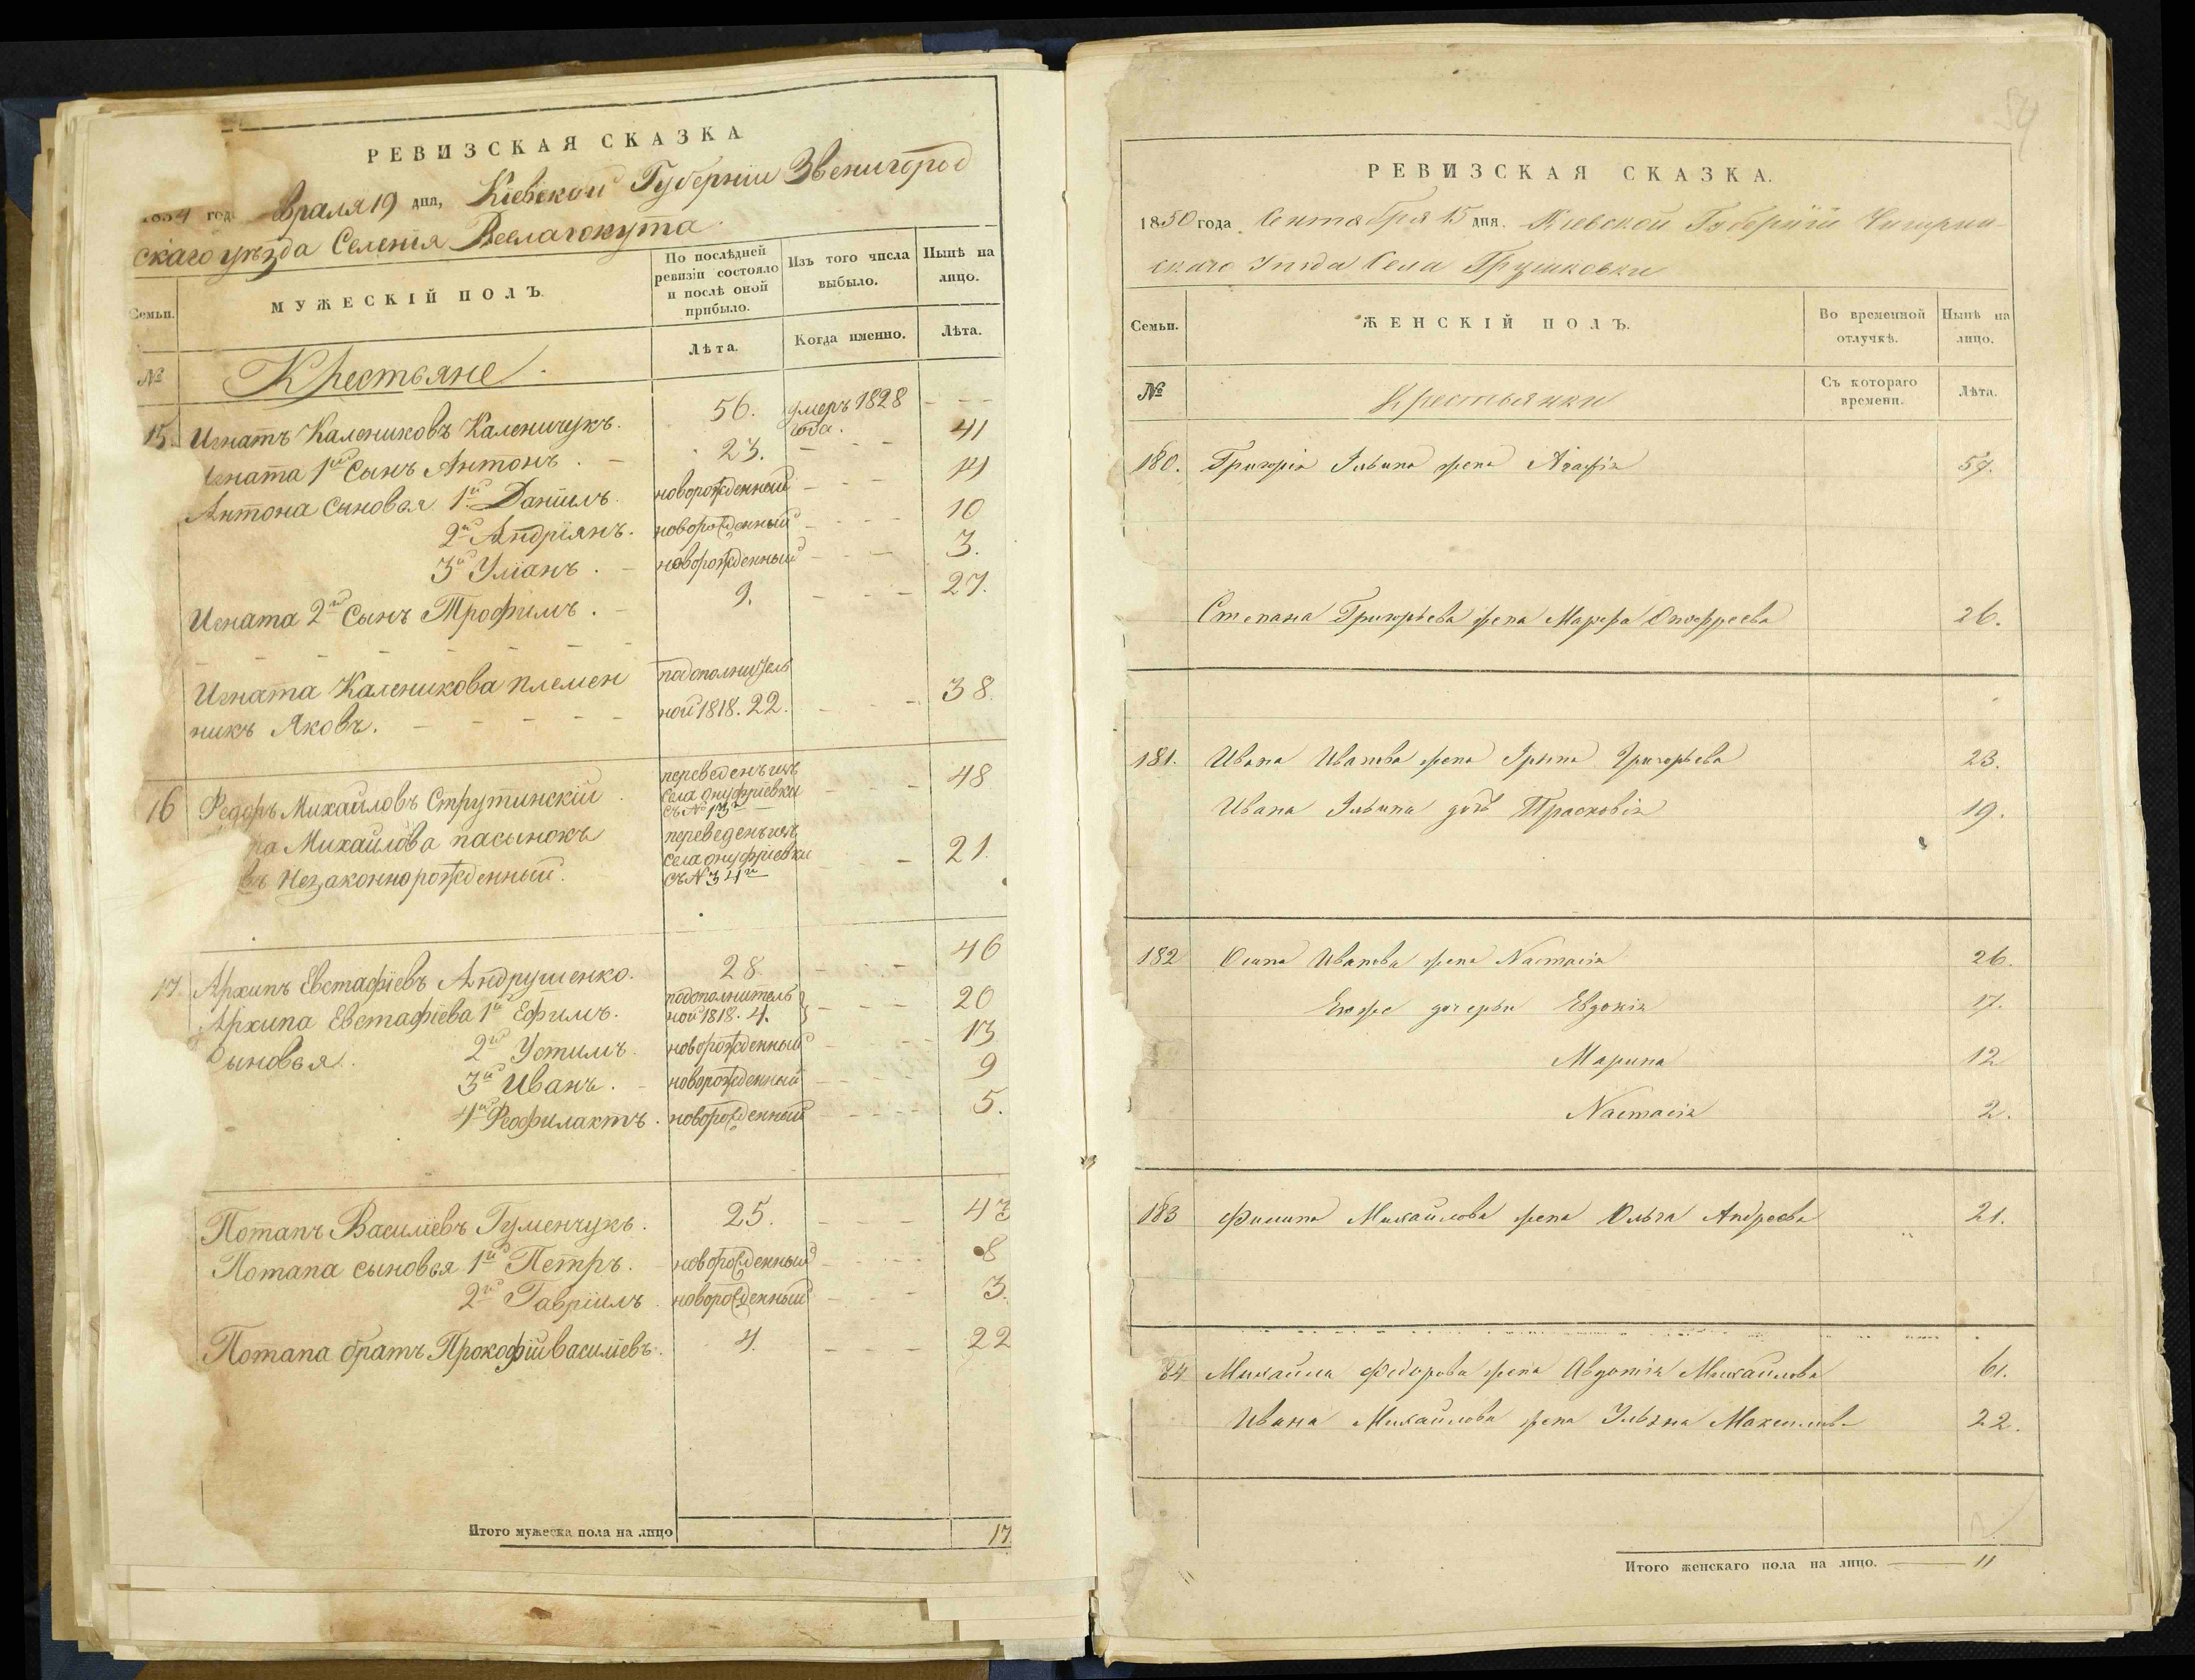 РЕВИЗСКАЯ СКАЗКА
1834 год враля 19 дня, Кіевской Губерніи Звенигород
скаго уѣзда Селенія
Семьи.
МУЖЕСКІЙ ПОЛЪ.
По послѣдней ревизіи состояло и послѣ оной прибыло.
Изъ того числа выбыло.
Нынѣ на лицо.
№
Крестьяне.
Лѣта.
Когда именно.
Лѣта.
15. Игнатъ Калениковъ Каленичукъ. 56. умеръ 1828 года. - - -
Игната 1й Сынъ Антонъ. - 23. - 41
Антона сыновья 1й Даніилъ. новорожденный - - - 14
2й Андріянъ. новорожденный - - - 10
3й Уліанъ. - новорожденный - - - 3.
Игната 2й Сынъ Трофимъ. - 9. - - - 27.
Игната Каленикова племен
никъ Яковъ. - - - - - подополнитель
ной 1818. 22. - - - 38.
16 Федоръ Михайловъ Струтинскій. переведенъ изъ
села онуфріевки
съ № 13го - - - 48
ра Михайлова пасынокъ переведенъ изъ
въ Незаконнорожденный. села онуфріевки
съ № 34го - 21.
17. Архипъ Евстафіевъ Андрушенко. 28. - - - 46
Архипа Евстафіева 1й Ефимъ. подополнитель
ной 1818. 4. - - - 20
Сыновья. 2й Устимъ. новорожденный - - - 13
3й Иванъ. - новорожденный - - - 9
4й Феофилактъ. новорожденный - - - 5.
Потапъ Василіевъ Гуменчукъ. 25. - - - 43
Потапа сыновья 1й Петръ. новорожденный - - - 8
2й Гавріилъ. новорожденный - - - 3.
Потапа братъ Прокофій василіевъ. 4. - - - 22
Итого мужеска пола на лицо 17
54
РЕВИЗСКАЯ СКАЗКА.
1850 года Сентября 15 дня. Кіевской Губерніи Чигрин-
скаго Уѣзда Села Грушковки
Семьи.
ЖЕНСКІЙ ПОЛЪ.
Во временной отлучкѣ.
Нынѣ на лицо.
№
Крестьянки
Съ котораго времени.
Лѣта.
180. Григорія Ильина жена Агафія
Степана Григорьева жена Марфа Онофреева 26.
181. Ивана Иванова жена Ирина Григорьева 23.
Ивана Ильина дочь Прасковія 19.
182 Осипа Иванова жена Настасія 26.
Егоже дочерьи Евдокія 17.
Марина 12
Настасія 2.
183 Филипа Михайлова жена Ольга Андреева 21.
84 Михайла Федорова жена Авдотія Михайлова 61.
Ивана Михайлова жена Ульяна Максимов- 22.
Итого женскаго пола на лицо. 11